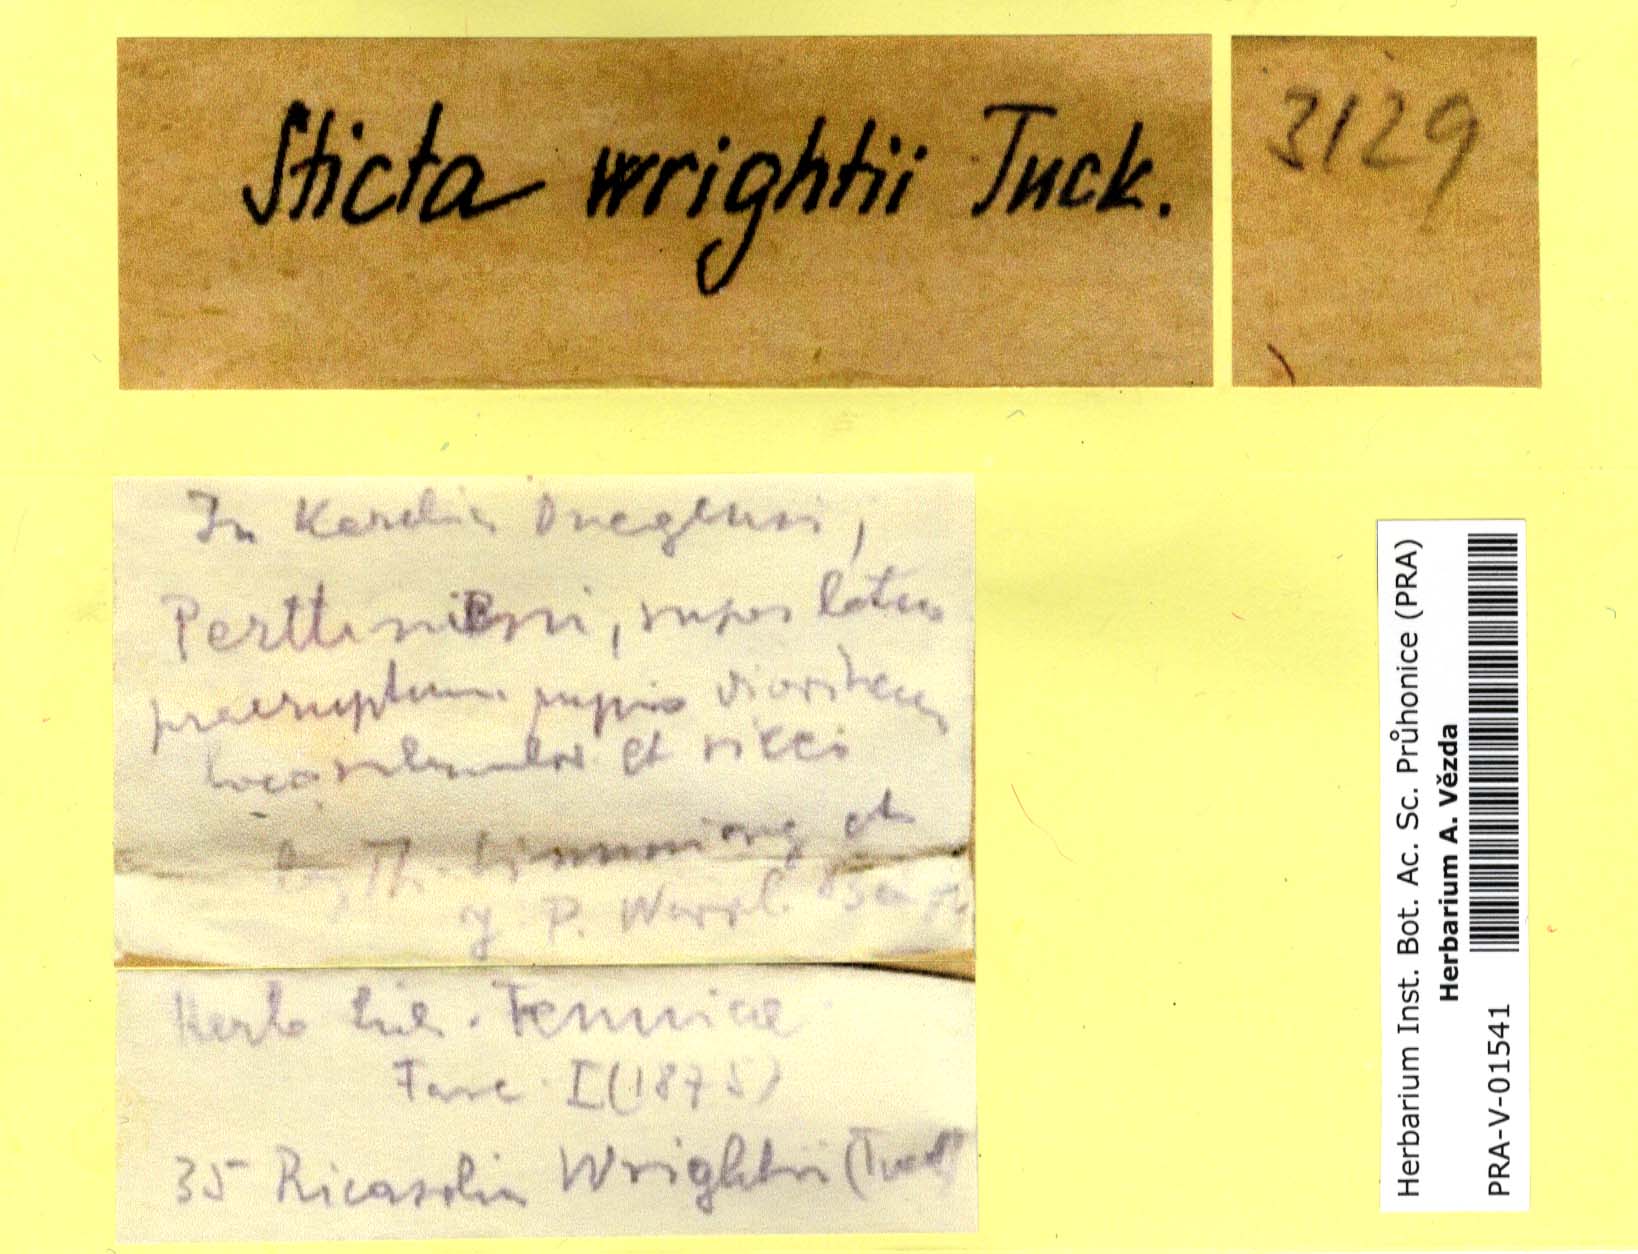 Sticta wrightii Tuck.
3129
In Karelia Onegensi,
Perttiniemi, super latus
praeruptum rupis dioriticae
loco et sicci
leg. Th. Simming et
J. P. Norrl.
Herb Lich. Fenniae
Fasc. I (1875)
35 Ricasolia Wrightii (Tuck)
Herbarium Inst. Bot. Ac. Sc. Průhonice (PRA)
Herbarium A. Vězda
PRA-V-01541